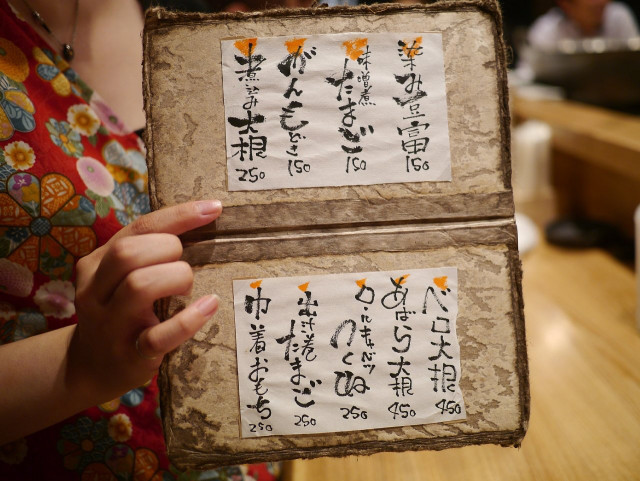 染み豆富
150
味噌煮
たまご
150
がんもどき
150
煮込み大根
250
ベロ大根
450
あばら大根
450
ロールキャベツ
250
出汁巻
たまご
250
巾着おもち
250